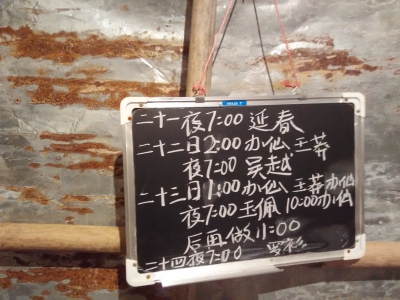 二十一夜7:00 延春
二十二日2:00办仙 王莽
夜7:00 吴越
二十三日1:00办仙 王莽办仙
夜7:00 玉佩 10:00办仙
后再做1:00
二十四夜7:00 罗衫